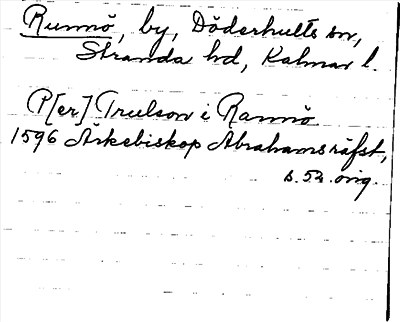 Runnö, by, Döderhults sn,
Stranda hd, Kalmar l.
P[er] Trulson i Rannö
1596 Ärkebiskop Abrahams räfst,
s. 52. orig.